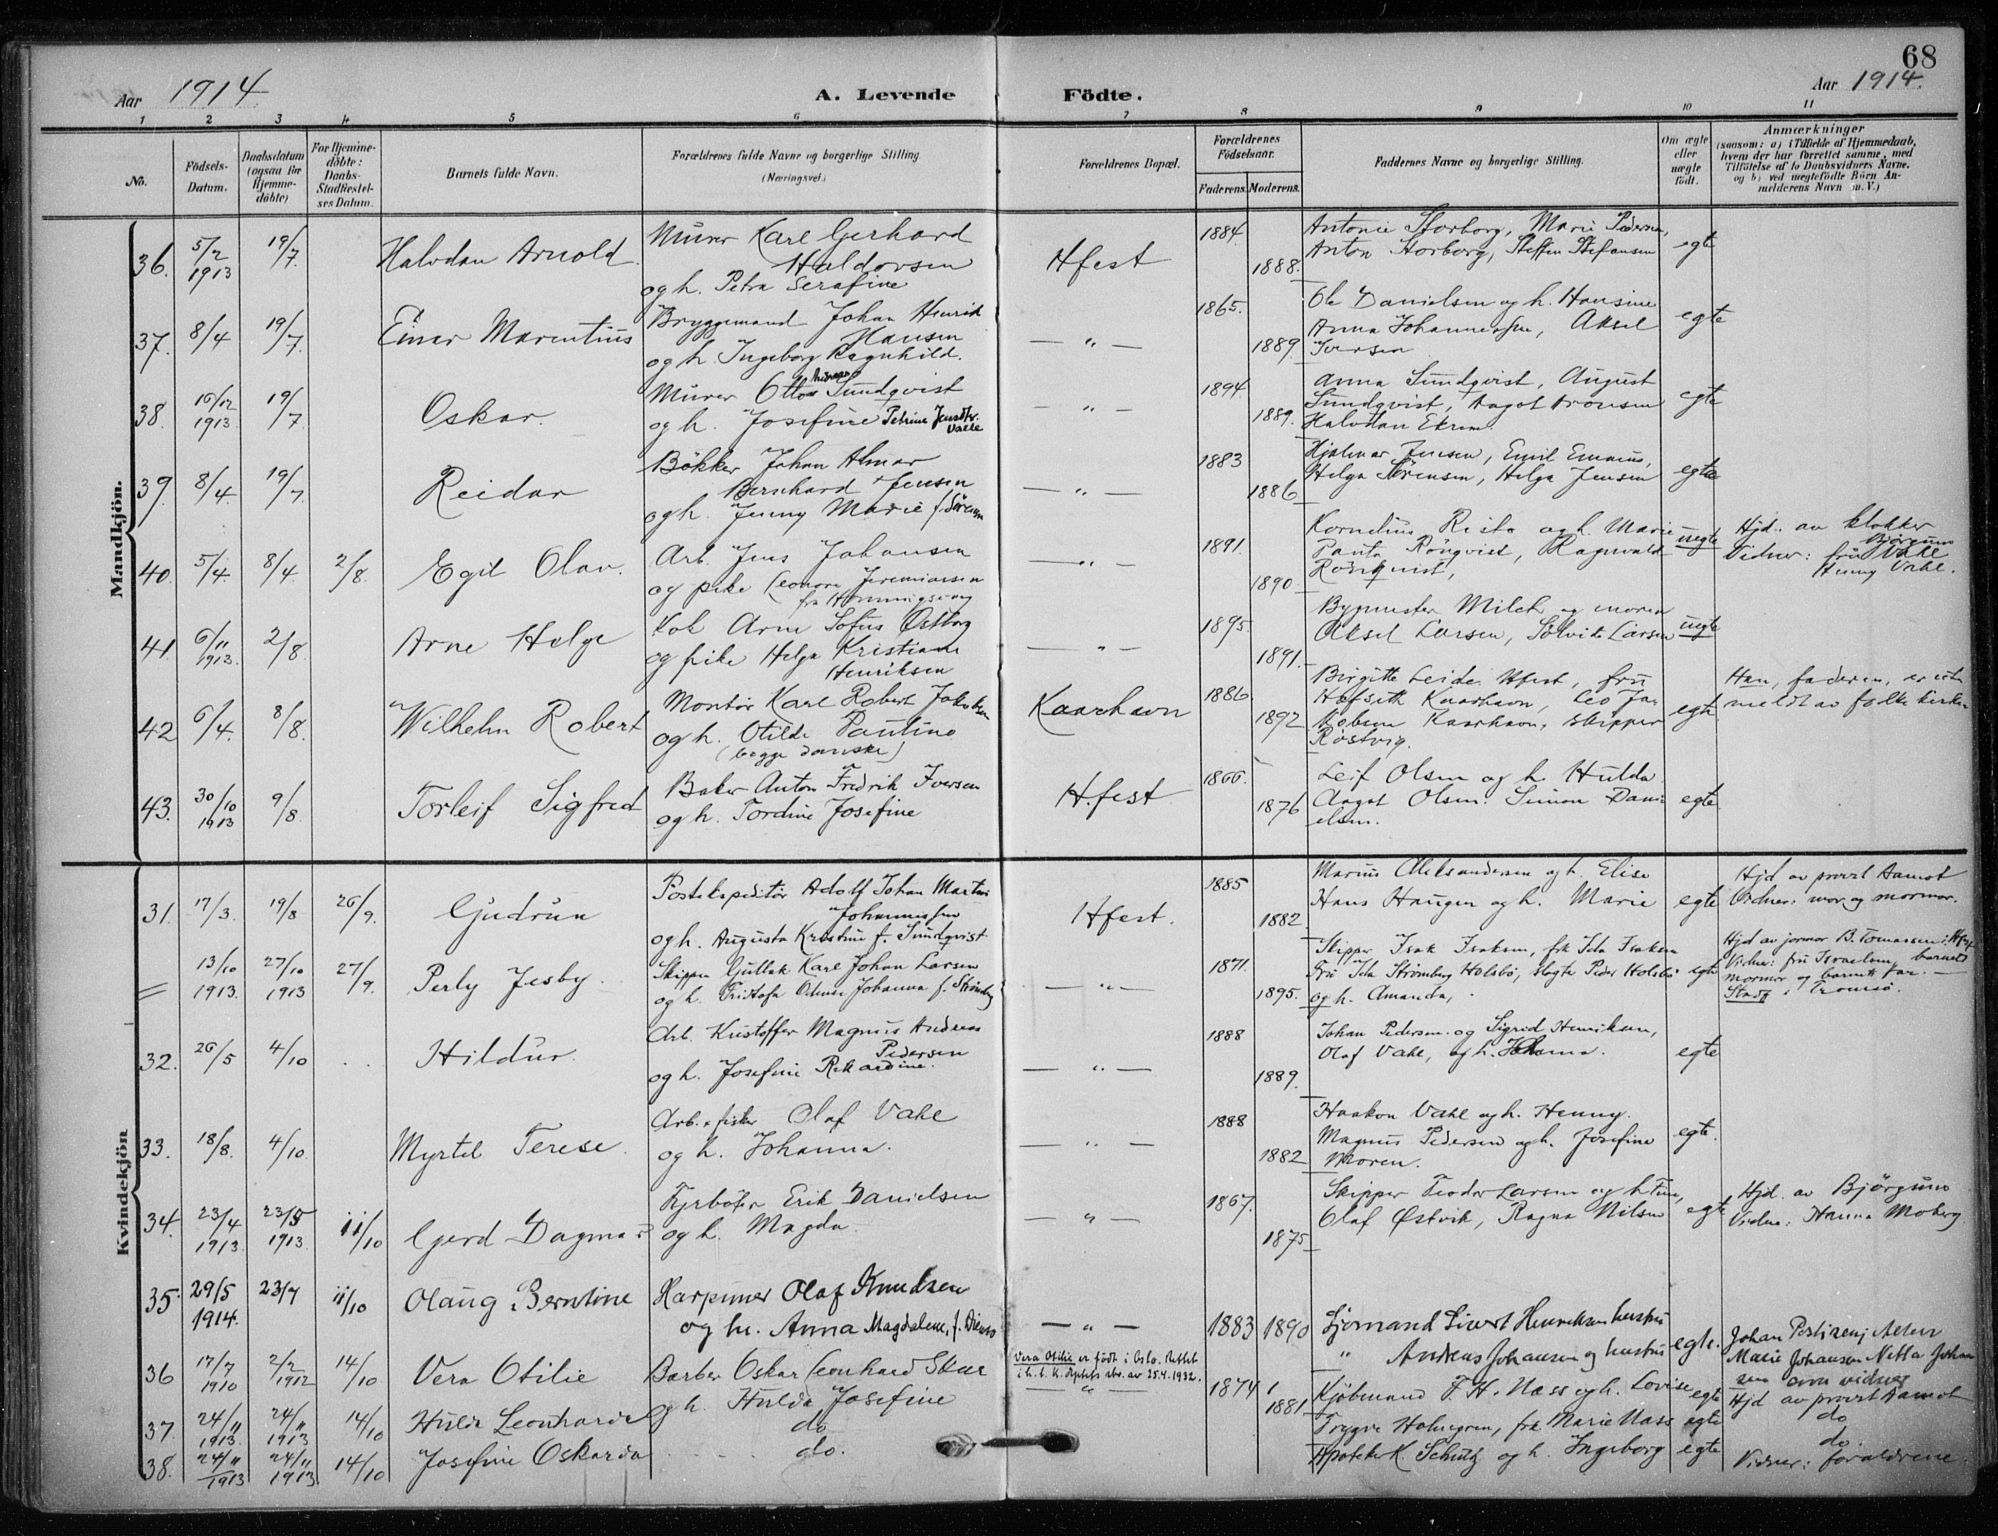 68
Aar 1914.
A. Levende Födte.
Aar 1914.
1 2 3 4 5 6 7 8 9 10 11
No.
Födsels-Datum.
Daabsdatum (ogsaa for Hjemme-döbte)
For Hjemme-döbte: Daabs-Stadfæstel-ses Datum.
Barnets fulde Navn.
Forældrenes fulde Navne og borgerlige Stilling.
(Næringsvei.)
Forældrenes Bopæl.
Forældrenes Födselsaar.
Faderens. Moderens.
Faddernes Navne og borgerlige Stilling.
Om ægte eller uægte födt.
Anmærkninger
(saasom: a) i Tilfælde af Hjemmedaab, hvem der har forrettet samme, med Tilföielse af to Daabsvidners Navne. og b) ved uegtefödte Börn Anmelderens Navn m. V.)
Mandkjön.
36. 5/2 1913 19/7. Halvdan Arnold. Murer Karl Gerhard
Haldorsen
og h. Petra Serafine
Hfest 1884. 1888.
Antonie Storborg, Marie Pedersen,
Anton Storborg, Steffen Stefansen
egte
37. 8/4 19/7. Einar Marentius
Bryggemand Johan Henrik
Hansen
og h. Ingeborg Ragnhild.
— " — 1865. 1889.
Ole Danielsen og h. Hansine
Anna Johannessen, Aksel
Iversen.
egte
38. 16/12 1913. 19/7. Oskar.
Murer Otto Sundqvist
og h. Josefine Petrine Jensdtr. Valle
— " — 1894. 1889.
Anna Sundqvist, August
Sundqvist, Aagot Aronsen
Halvdan Ekrem.
egte
39. 8/4 19/7. Reidar
Bökker Johan Almar
Bernhard Jensen
og h. Jenny Marie f. Sörensen
— " — 1883 1886
Hjalmar Jensen, Emil Emaus,
Helga Sörensen, Helga Jensen
egte
40. 5/4. 8/4. 2/8. Egil Olav.
Arb. Jens Johansen
og pike Leonora Jeremiassen
fra Honningsvaag
— " — 1891. 1890.
Kornelius Risto og h. Marie
Rönqvist, Ragnvald
Rönqvist,
uegte
Hjd. av klokker
Björgum
Vidner: fru Vahl
Henny Vahl.
41. 6/11 1913. 2/8. Arne Helge
Kok Arne Sofus Østberg
og pike Helga Kristiane
Henriksen
— " — 1895. 1891.
Bygmester Milch og moren
Aksel Larsen, Solvida Larsen
uegte
42 6/4. 8/8. Wilhelm Robert
Montör Karl Robert Jakobsen
og h. Otilde Pauline
(begge danske)
Kaarhavn 1886 1892
Birgitte Leide Hfest, fru
Hofseth Kaarhavn, Leo Ja-
kobsen Kaarhavn, skipper
Röstvig.
egte
Han, faderen, er ut-
meldt av folkekirken
43. 30/10 1913 9/8. Torleif Sigfred
Baker Anton Fredrik Iversen
og h. Tordine Josefine
H.fest 1866. 1876
Leif Olsen og h. Hulda
Aagot Olsen. Simon Dani-
elsen.
egte
Kvindekjön
31. 17/3. 19/8 26/9. Gudrun
Postekspeditör Adolf Johan Martin
Johannessen
og h. Augusta Kristine f. Sundqvist
Hfest. 1885 1882
Marius Aleksandersen og h. Elise
Hans Haugen og h. Marie
egte
Hjd av provst Aamot
Vidner: mor og mormor.
= 13/10 1913. 27/10 1913 27/9. Perly Jesby.
Skipper Gullak Karl Johan Larsen
og h. Tristofa Johanna f. Strömberg
— " — 1871. 1895.
Skipper Isak Isaksen, frk Ida Isaksen
Fru Ida Strömberg Holsbö, slagter Peder Holsbö
og h. Amanda,
egte
Hjd av jormor B. Tomassen, Hfest
Vidner: fru Israelsen, barnets
mormor og barnets far. —
Stadf i Tromsö.
32. 26/5 4/10 Hildur.
Arb. Kristoffer Magnus Andreas
Pedersen
og h. Josefine Rikardine.
— " — 1888 1889.
Johan Pedersen og Sigrid Henriksen,
Olaf Vahl, og h. Johanna.
egte
33. 18/8. 4/10. Myrtel Terese.
Arb. & fisker Olaf Vahl
og h. Johanna.
— " — 1888 1882
Haakon Vahl og h. Henny.
Magnus Pedersen og h. Josefine
Moren.
egte.
34. 23/4 1913. 23/5 1913. 11/10 Gerd Dagmar
Fyrböter Erik Danielsen
og h. Magda.
— " — 1867. 1875
Skipper Teodor Larsen og h.
Olaf Østvik, Ragna Nilsen
egte
Hjd. av Björgum
Vidner: Hanna Moberg
35. 29/5 1914. 23/7 11/10 Olaug Berntine
Harpuner Olaf Knudsen
og hu. Anna Magdalene, f.
— " — 1883 1890
Sjömand Sivert Henriksen hustru
" Andreas Johansen og hustru
egte.
Johan
Marie Johansen Netta Johan
sen som vidner
36 17/7 1910 2/2 1912 14/10 Vera Otilie
Barber Oskar Leonhard Skar
og h. Hulda Josefine
Vera Otilie er födt i Oslo. Rettet
i h. t. K. Dptets skr. av 25.4.1932.
— " — 1874 1881
Kjöbmand F. H. Nass og h. Lovise
egte
Hjd av provst Aamot
37. 24/11 1913. 24/11 1913 14/10 Hulda Leonharda
do
Trygve Holmgren, frk Marie Nass egte
do
38. 24/11 1913 24/11 1913. 14/10 Josefine Oskarda
do.
Apoteker K. Schulz og h. Ingeborg egte
do.
Vidner: foraldrene